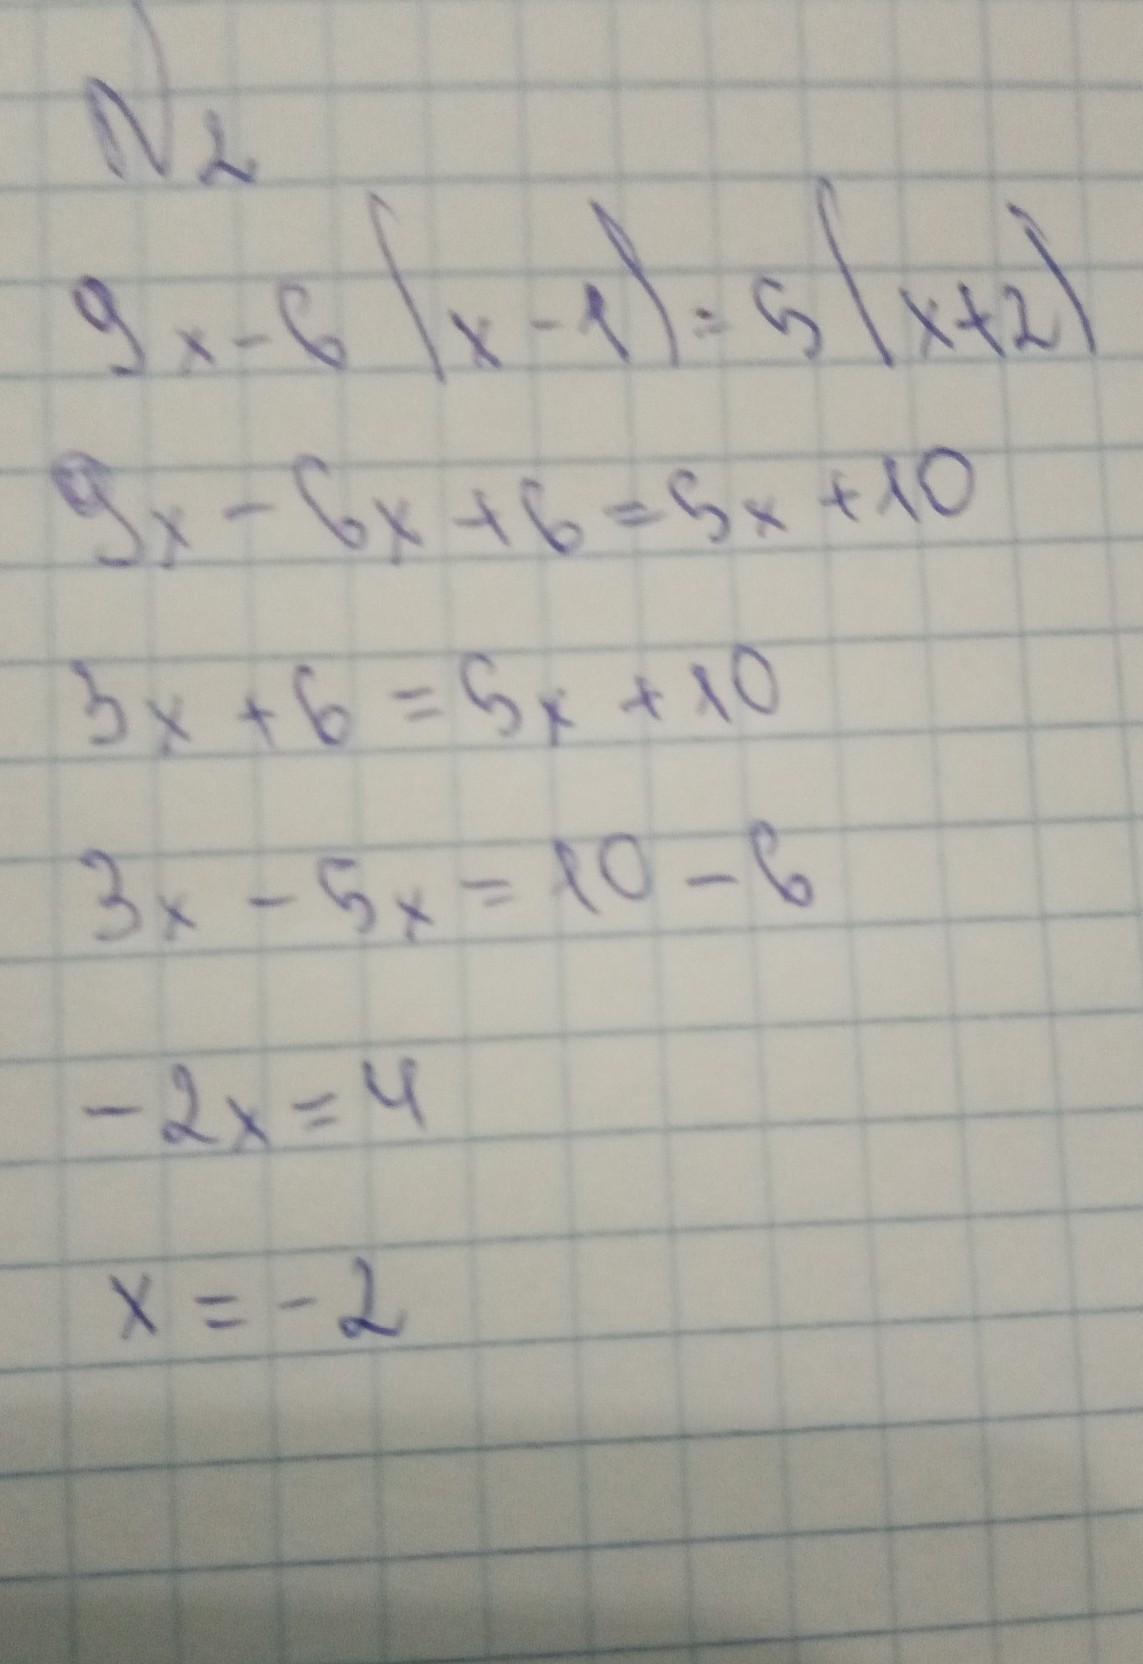 N2
9x-6(x-1)=5(x+2)
9x-6x+6=5x+10
3x+6=5x+10
3x-5x=10-6
-2x=4
x=-2